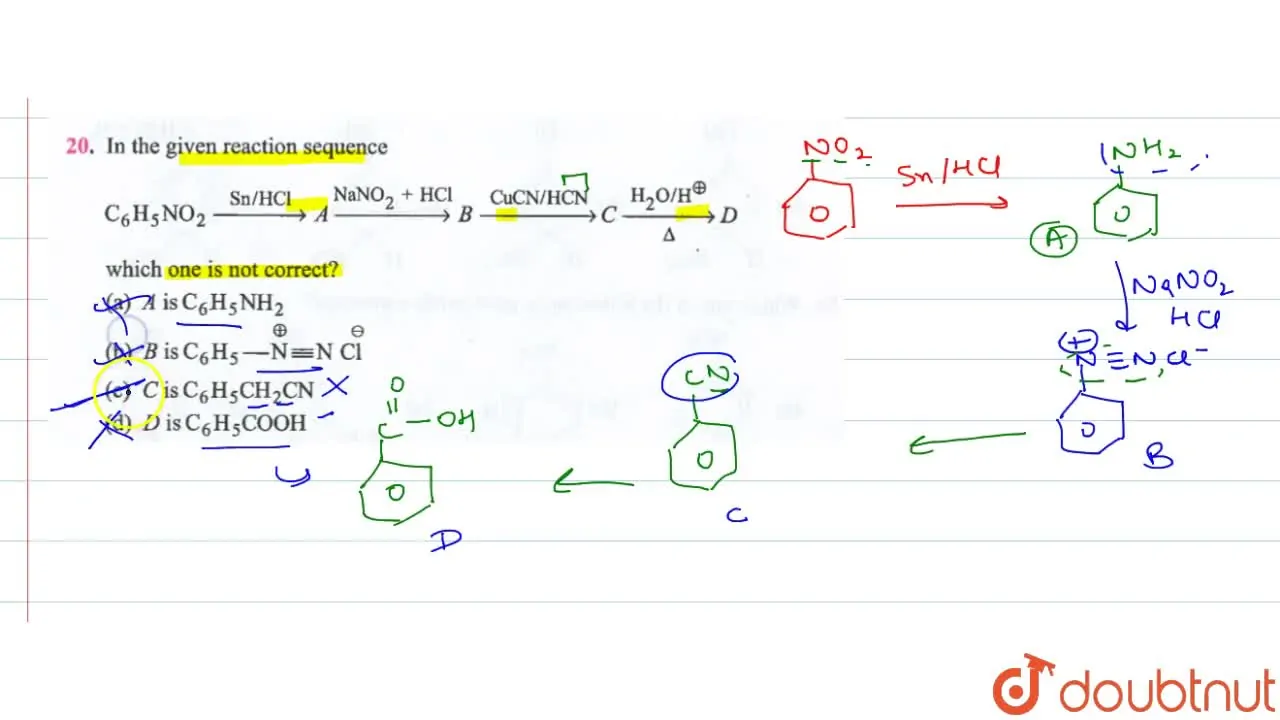 20. In the given reaction sequence
C₆H₅NO₂ —Sn/HCl→ A —NaNO₂ + HCl→ B —CuCN/HCN→ C —H₂O/H⊕, Δ→ D
which one is not correct?
(a) A is C₆H₅NH₂
(b) B is C₆H₅—N⊕≡N Cl⊖
(c) C is C₆H₅CH₂CN X
(d) D is C₆H₅COOH
NO₂
Sn/HCl
NH₂
A
NaNO₂
HCl
N≡NCl⁻
(+)
B
CN
C
O
C-OH
D
doubtnut